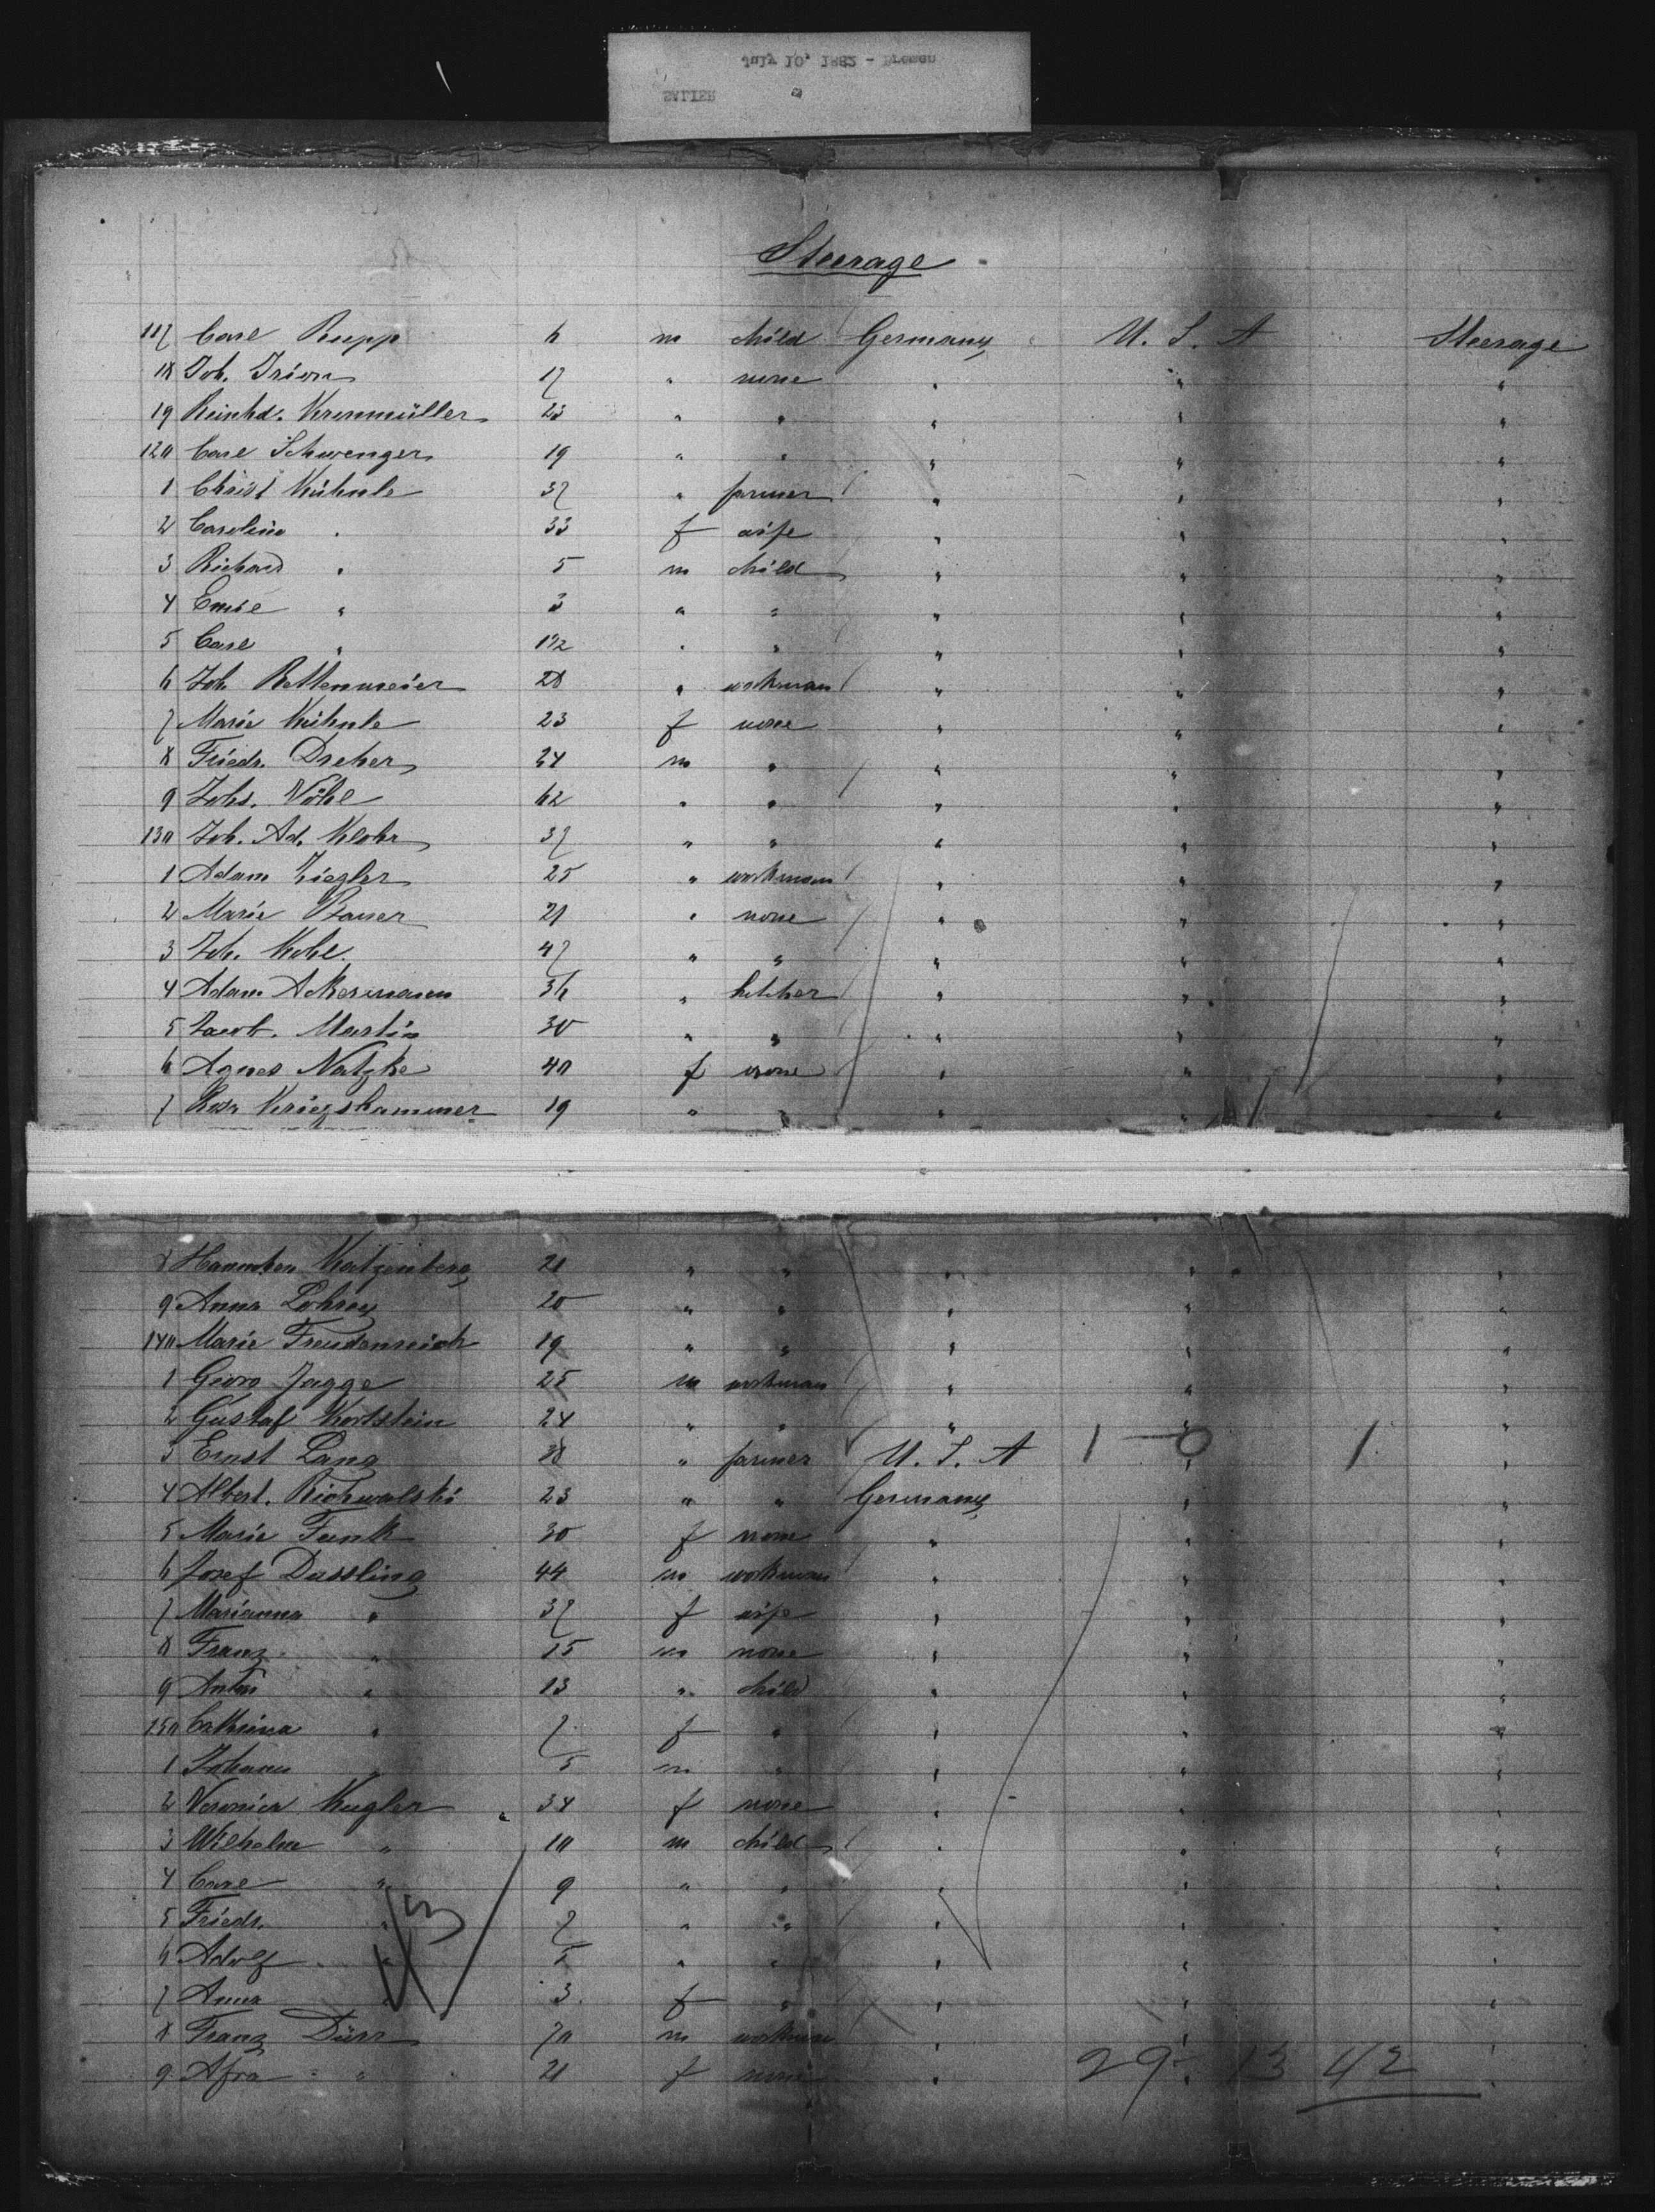 July 10, 1882 - Bremen
SALIER
Steerage
117 Carl Rupp 6 m child Germany U. S. A Steerage
18 Joh. Irion 17 " none " " "
19 Reinhd. Krenmüller 23 " " " " "
120 Carl Schwenger 19 " " " " "
1 Christ Kühnle 37 " farmer " " "
2 Caroline " 33 f wife " " "
3 Richard " 5 m child " " "
4 Emil " 3 " " " " "
5 Carl " 1 1/2 " " " " "
6 Joh Rettenmeier 28 " workman " " "
7 Marie Kühnle 23 f none " " "
8 Friedr. Dreher 24 m " " " "
9 Johs. Vöhl 62 " " " " "
130 Joh. Ad. Klohr 37 " " " " "
1 Adam Ziegler 25 " workman " " "
2 Marie 21 " none " " "
3 Joh. Kohl 47 " " " " "
4 Adam Ackermann 36 " " " "
5 Jacob. Martin 30 " " " " "
6 Agnes Natzke 40 f none " " "
7 Rosa Kriegshammer 19 " " " " "
8 Hannchen Katzenberg 21 " " " " "
9 Anna Lohrey 20 " " " " "
140 Marie Freudenreich 19 " " " " "
1 Georg Jagge 25 m workman " " "
2 Gustaf Kortstein 24 " " " " "
3 Ernst Lang 38 " farmer U. S. A 1 - 0 " 1 "
4 Albert. 23 " " Germany " "
5 Marie Funk 30 f none " " "
6 Josef Dassling 44 m workman " " "
7 Marianna " 37 f wife " " "
8 Franz " 15 m none " " "
9 Anton " 13 " child " " "
150 Cathrina " 7 f " " " "
1 Johann " 5 m " " " "
2 Veronica Kugler 34 f none " " "
3 Wilhelm " 10 m child " " "
4 Carl " 9 " " " " "
5 Friedr. " 7 " " " " "
6 Adolf " 5 " " " " "
7 Anna " 3 f " " " "
8 Franz Dürr 70 m workman " " "
9 Afra " 21 f none " " "
29 13 42